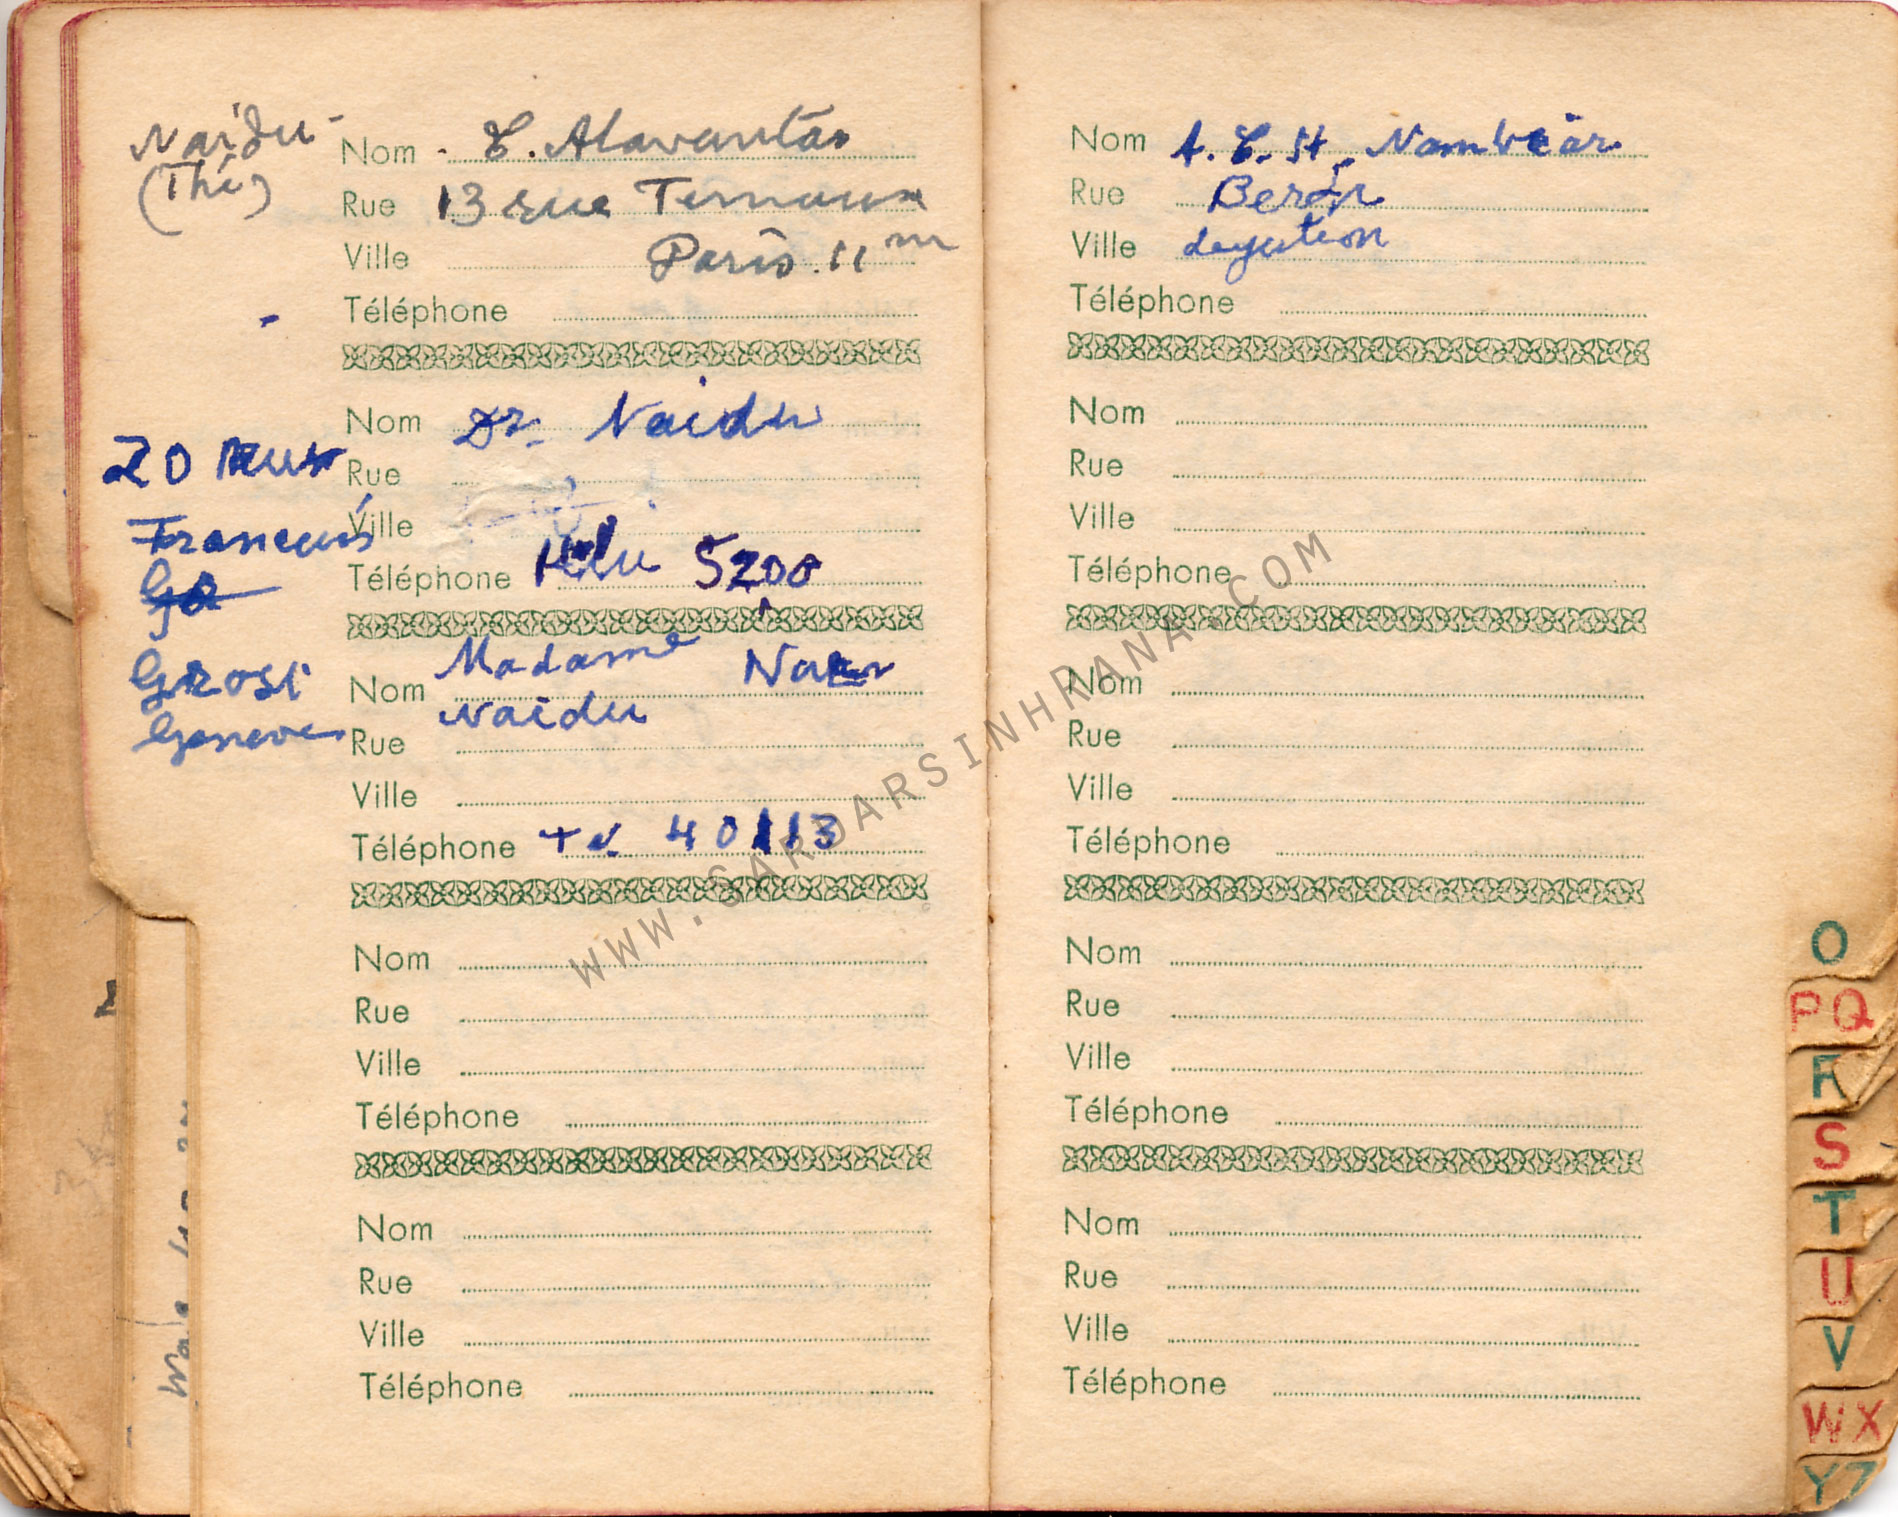 Naidu -
(Thé)
Nom - T. Alavantar
Rue 13 rue Ternaux
Ville Paris. 11 m
Téléphone
Nom Dr. Naidu
20 Rue
Rue
François
Ville
Téléphone 5200
Grosi
Geneve
Madame
Nom
Naidu
Rue
Ville
Téléphone 40113
Nom
Rue
Ville
Téléphone
Nom
Rue
Ville
Téléphone
Nom A. C. N. Nambiar
Rue Bern
Ville Legation
Téléphone
Nom
Rue
Ville
Téléphone
Nom
Rue
Ville
Téléphone
Nom
Rue
Ville
Téléphone
Nom
Rue
Ville
Téléphone
O
PQ
R
S
T
U
V
WX
YZ
WWW.SARDARSINHRANA.COM